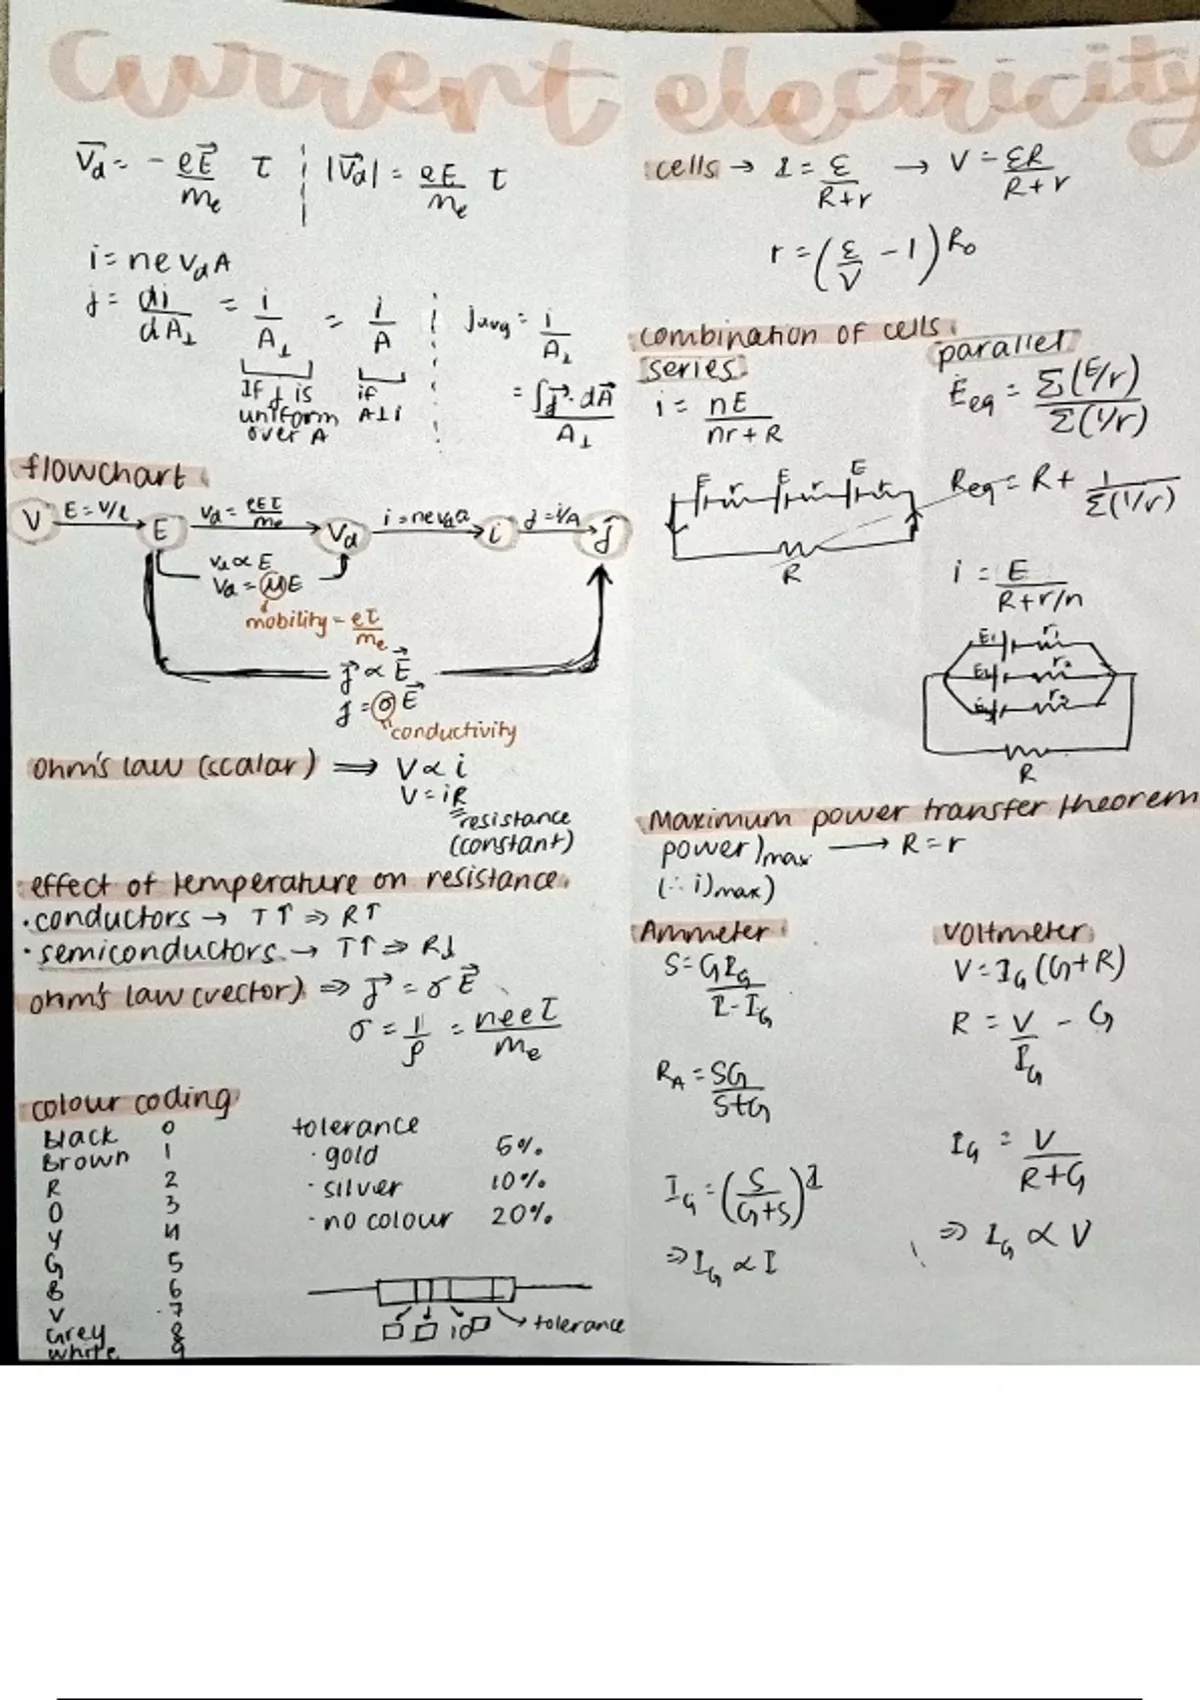 current electricity
v⃗d = - eE⃗/me τ | |v⃗d| = eE/me τ
i = neVdA
j = di/dA⊥ = i/A⊥ = i/A | javg = i/A⊥
If j is uniform over A
if A⊥i
= ∫j⃗·dA⃗/A⊥
flowchart
V E = V/l E Vd = eEτ/me Vd i = neVda i j = i/A j⃗
Vd ∝ E
Vd = μE
mobility = eτ/me
j⃗ ∝ E⃗
j = σE⃗
conductivity
ohm's law (scalar) ⟹ V ∝ i
V = iR
resistance
(constant)
effect of temperature on resistance.
• conductors → T↑ ⇒ R↑
• semiconductors → T↑ ⇒ R↓
ohm's law (vector) ⇒ j⃗ = σE⃗
σ = 1/ρ = neeτ/me
colour coding
Black 0
Brown 1
R 2
O 3
Y 4
G 5
B 6
V 7
Grey 8
white 9
tolerance
· gold 5%
· silver 10%
· no colour 20%
10
tolerance
cells → I = ε/R+r → V = εR/R+r
r = (ε/V - 1) R0
combination of cells.
series.
i = nE/nr+R
E r E r E r
R
parallel
Eeq = Σ(E/r)/Σ(1/r)
Req = R + 1/Σ(1/r)
i = E/R+r/n
E1 r1
E2 r2
E3 r2
R
Maximum power transfer theorem
power)max ⟶ R = r
(∴ i)max)
Ammeter
S = GIG/I-IG
RA = SG/S+G
IG = (S/G+S) I
⇒ IG ∝ I
voltmeter
V = IG (G+R)
R = V/IG - G
IG = V/R+G
⇒ IG ∝ V